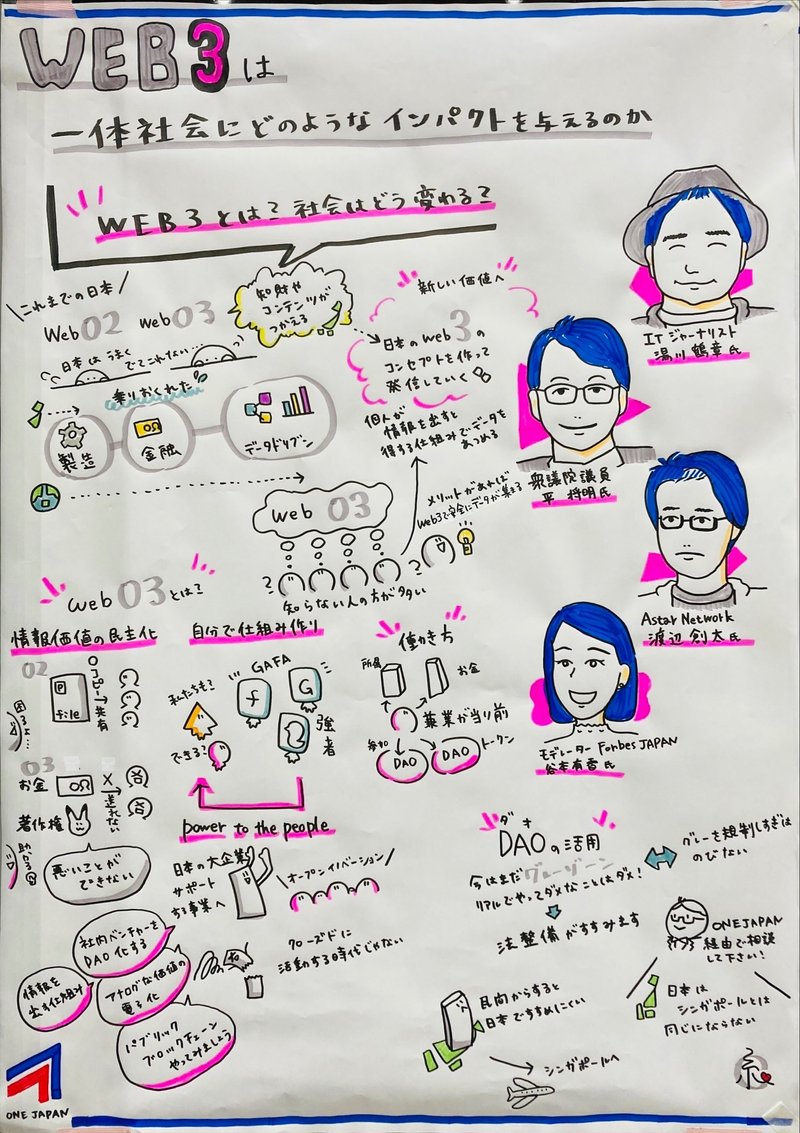 WEB3は
一体社会にどのようなインパクトを与えるのか
WEB3とは？社会はどう変わる？
これまでの日本
Web02 web03
日本はうまく
でてこれない…
乗りおくれた
製造
金融
データドリブン
知財や
コンテンツが
つかえる
新しい価値へ
日本のweb3の
コンセプトを作って
発信していく
個人が
情報を出すと
得する仕組みでデータを
あつめる
メリットがあれば
web3で安全にデータが集まる
web 03
知らない人の方が多い
ITジャーナリスト
湯川鶴章氏
衆議院議員
平 将明氏
Astar Network
渡辺創太氏
モデレーター Forbes JAPAN
谷本有香氏
web03とは？
情報価値の民主化
02
file
コピー→共有
困るよ…
03
お金
送れない
著作権
助かる
悪いことが
できない
自分で仕組み作り
GAFA
f
G
私たちも？
できる？
強者
power to the people
働き方
所属
お金
兼業が当り前
参加
トークン
DAO
DAO
日本の大企業
サポート
する事業へ
オープンイノベーション
クローズドに
活動する時代じゃない
社内ベンチャーを
DAO化する
情報を
出す仕組み
アナログな価値の
電子化
パブリック
ブロックチェーン
やってみましょう
ダオ
DAOの活用
今はまだグレーゾーン
リアルでやってダメなことはダメ！
法整備がすすみます
グレーを規制しすぎは
のびない
ONEJAPAN
経由で相談
して下さい！
日本は
シンガポールとは
同じにならない
民向からすると
日本ですすめにくい
シンガポールへ
ONE JAPAN